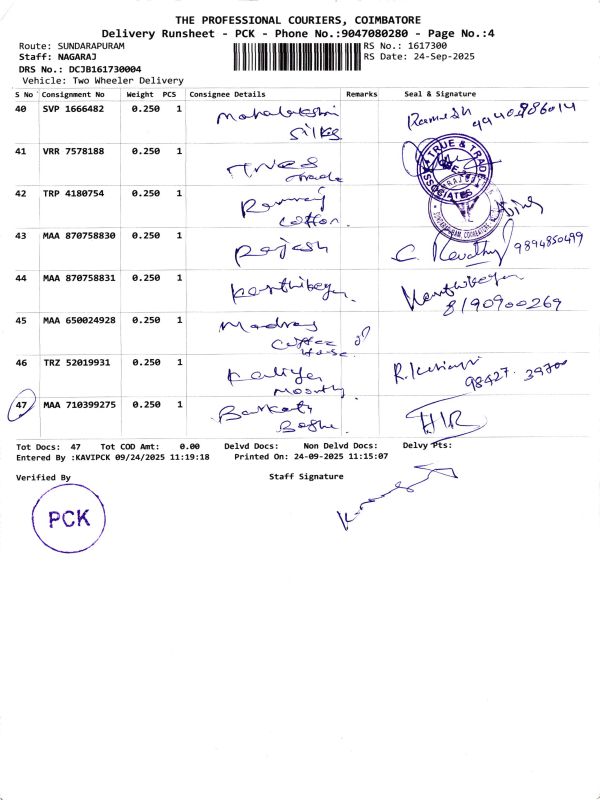 THE PROFESSIONAL COURIERS, COIMBATORE
Delivery Runsheet - PCK - Phone No.:9047080280 - Page No.:4
Route: SUNDARAPURAM
RS No.: 1617300
Staff: NAGARAJ
RS Date: 24-Sep-2025
DRS No.: DCJB161730004
Vehicle: Two Wheeler Delivery
S No Consignment No Weight PCS Consignee Details Remarks Seal & Signature
40 SVP 1666482 0.250 1 Mahalakshmi Silks Ramesh
41 VRR 7578188 0.250 1 Trues Trade
TRUE & TRADE ASSOCIATES
42 TRP 4180754 0.250 1 Cotton.
43 MAA 870758830 0.250 1 Rajesh C. Revathy 9894850499
44 MAA 870758831 0.250 1 Karthikeyan. Karthikeyan 8190900269
45 MAA 650024928 0.250 1 Madras Coffee House.
46 TRZ 52019931 0.250 1 Kaliya Moorthy R. 98427 39700
47 MAA 710399275 0.250 1 Barkath
Tot Docs: 47 Tot COD Amt: 0.00 Delvd Docs: Non Delvd Docs: Delvy Pts:
Entered By :KAVIPCK 09/24/2025 11:19:18 Printed On: 24-09-2025 11:15:07
Verified By Staff Signature
PCK